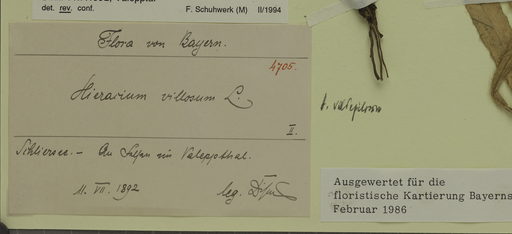 det. rev. conf.
F. Schuhwerk (M) II/1994
Flora von Bayern.
4705.
Hieracium villosum L.
II.
Schliersee. - An Felsen im Valeppthal.
11. VII. 1892
leg.
Ausgewertet für die
floristische Kartierung Bayerns
Februar 1986